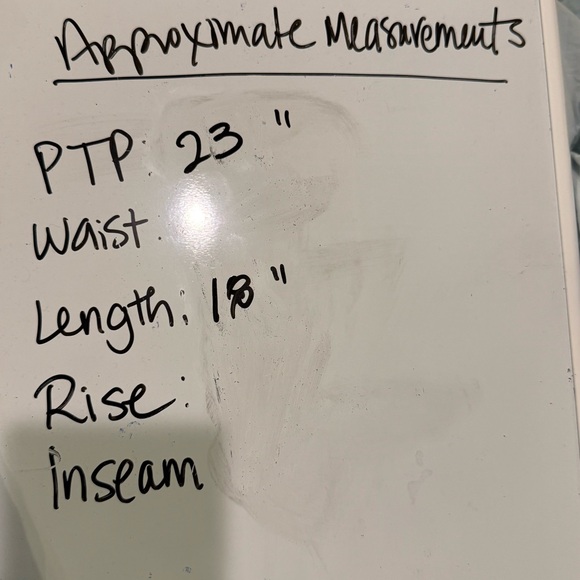 Approximate Measurements
PTP: 23 "
Waist
Length: 18 "
Rise:
inseam